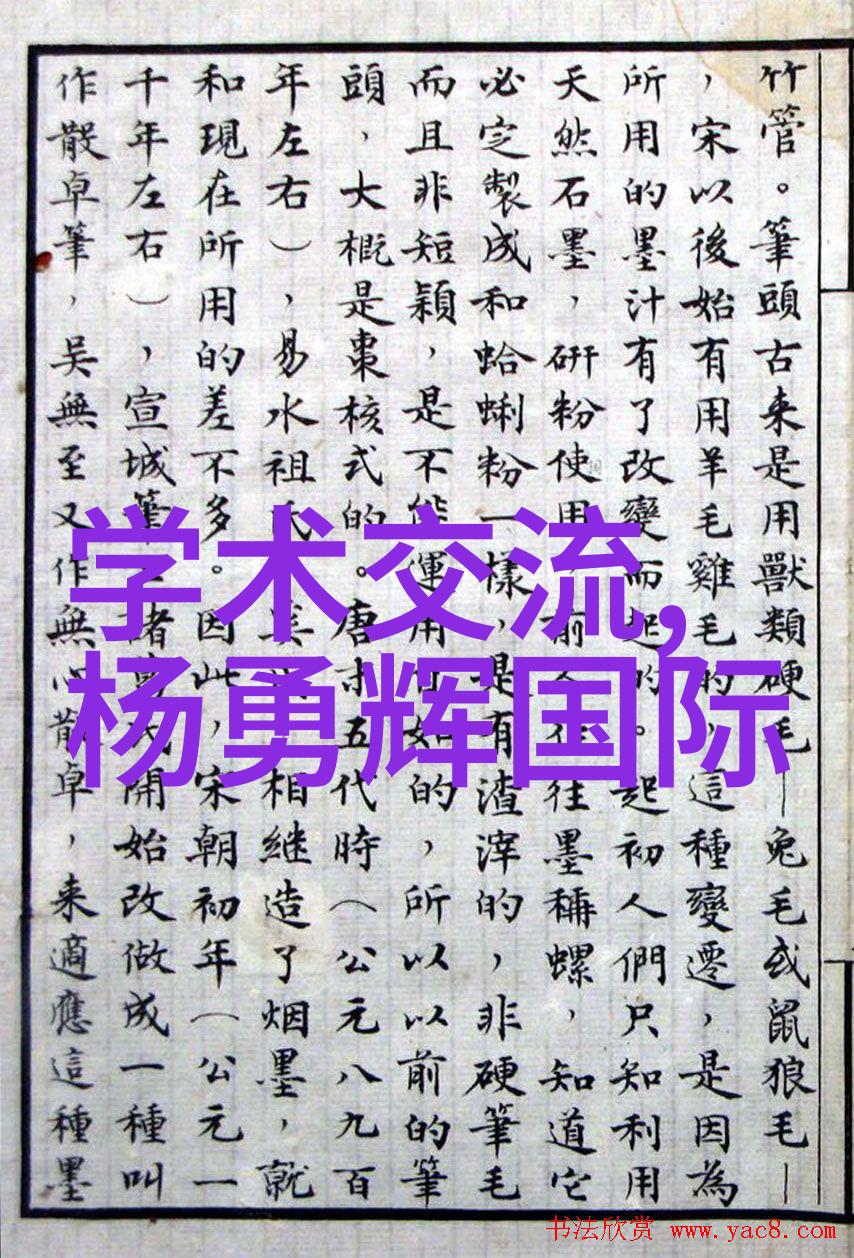 竹管。筆頭古来是用獸類硬毛—兔毛或鼠狼毛—
，宋以後始有用羊毛雞毛的，這種變遷，是因為
所用的墨汁有了改變而起的。起初人們只知利用
天然石墨，研粉使用，前人往往墨稱螺，知道它
必定製成和蛤蜊粉一樣，是有渣滓的，非硬筆毛
而且非短穎，是不能運用自如的，所以以前的筆
頭，大概是棗核式的。唐末五代時（公元八九百
年左右），易水祖氏奚相継造了烟墨，就
和現在所用的差不多。因此，宋朝初年（公元一
千年左右），宣城筆諸氏開始改做成一種叫
作散卓筆，吴無至又作無心散卓，来適應這種墨
学术交流,
杨勇辉国际
书法欣赏 www.yac8.com